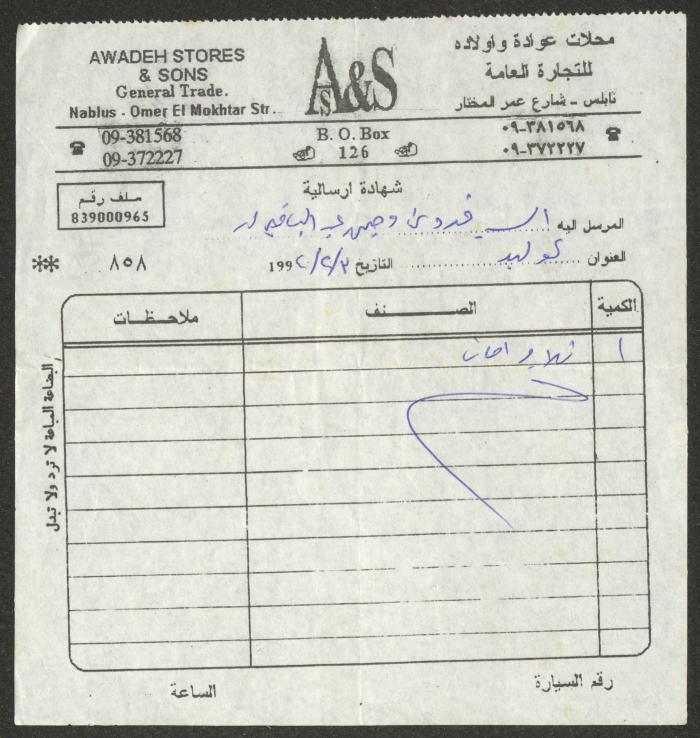 AWADEH STORES
& SONS
General Trade.
Nablus - Omer El Mokhtar Str.
A&S
S
محلات عوادة واولاده
للتجارة العامة
نابلس - شارع عمر المختار
09-381568
09-372227
B. O. Box
126
٠٩-٣٨١٥٦٨
٠٩-٣٧٢٢٢٧
شهادة ارسالية
ملف رقم
839000965
المرسل اليه
العنوان
التاريخ ٣/٢/ 199
٨٥٨
الكمية الصنف ملاحظات
١
البضاعة المباعة لا ترد ولا تبدل
رقم السيارة الساعة